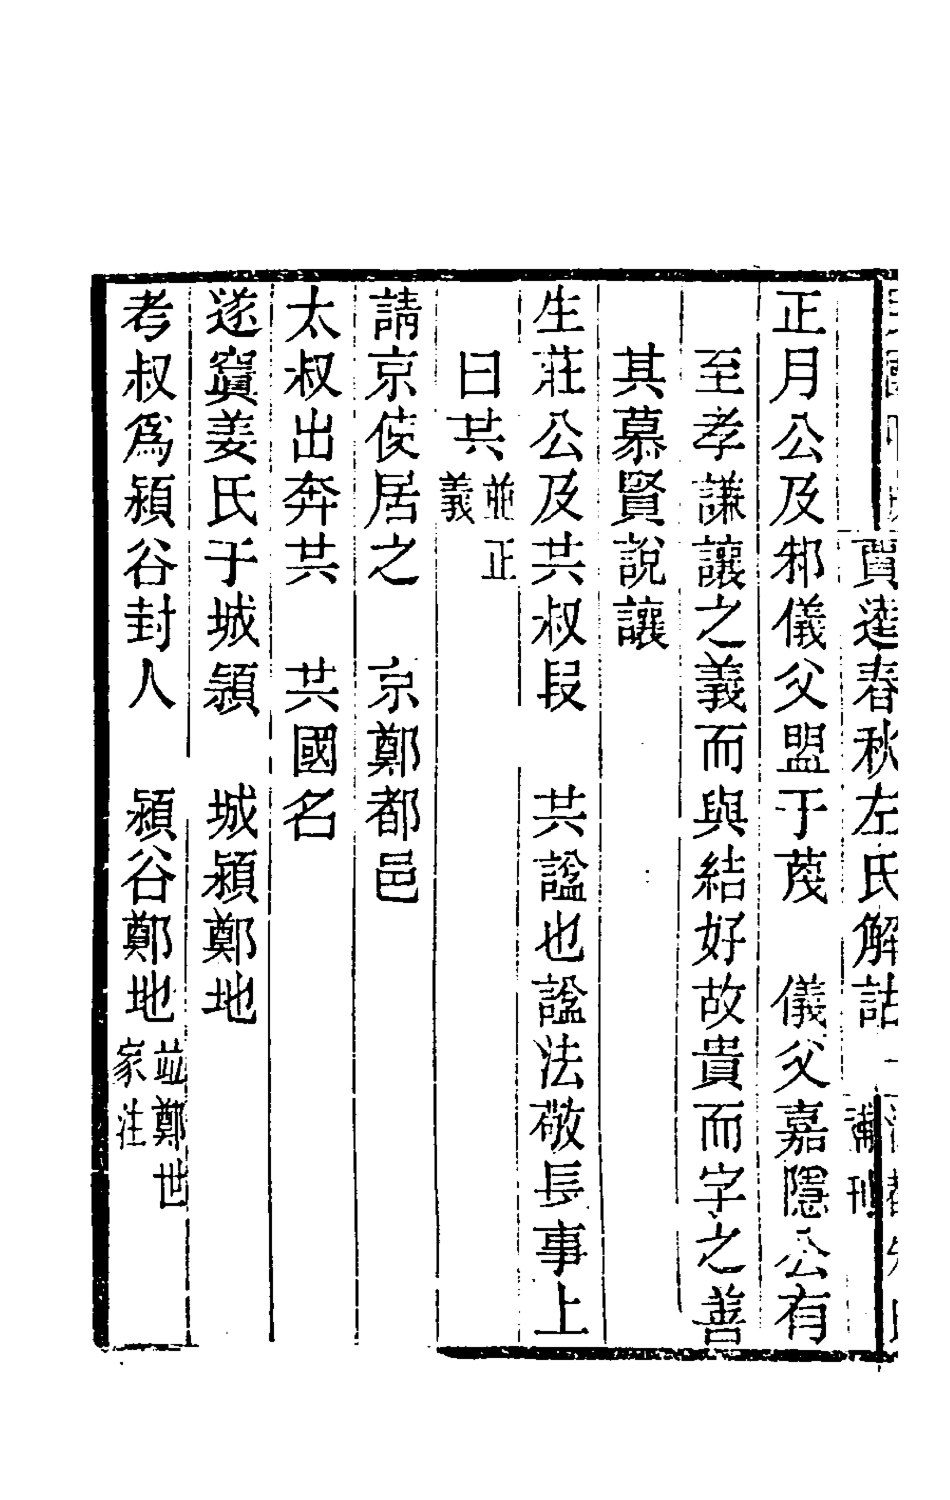 賈逵春秋左氏解詁一
補刊
正月公及邾儀父盟于蔑　儀父嘉隱公有
至孝謙讓之義而與結好故貴而字之善
其慕賢說讓
生莊公及共叔段　共諡也諡法敬長事上
曰共並正義
請京使居之　京鄭都邑
太叔出奔共　共國名
遂寘姜氏于城潁　城潁鄭地
考叔爲潁谷封人　潁谷鄭地並鄭世家注